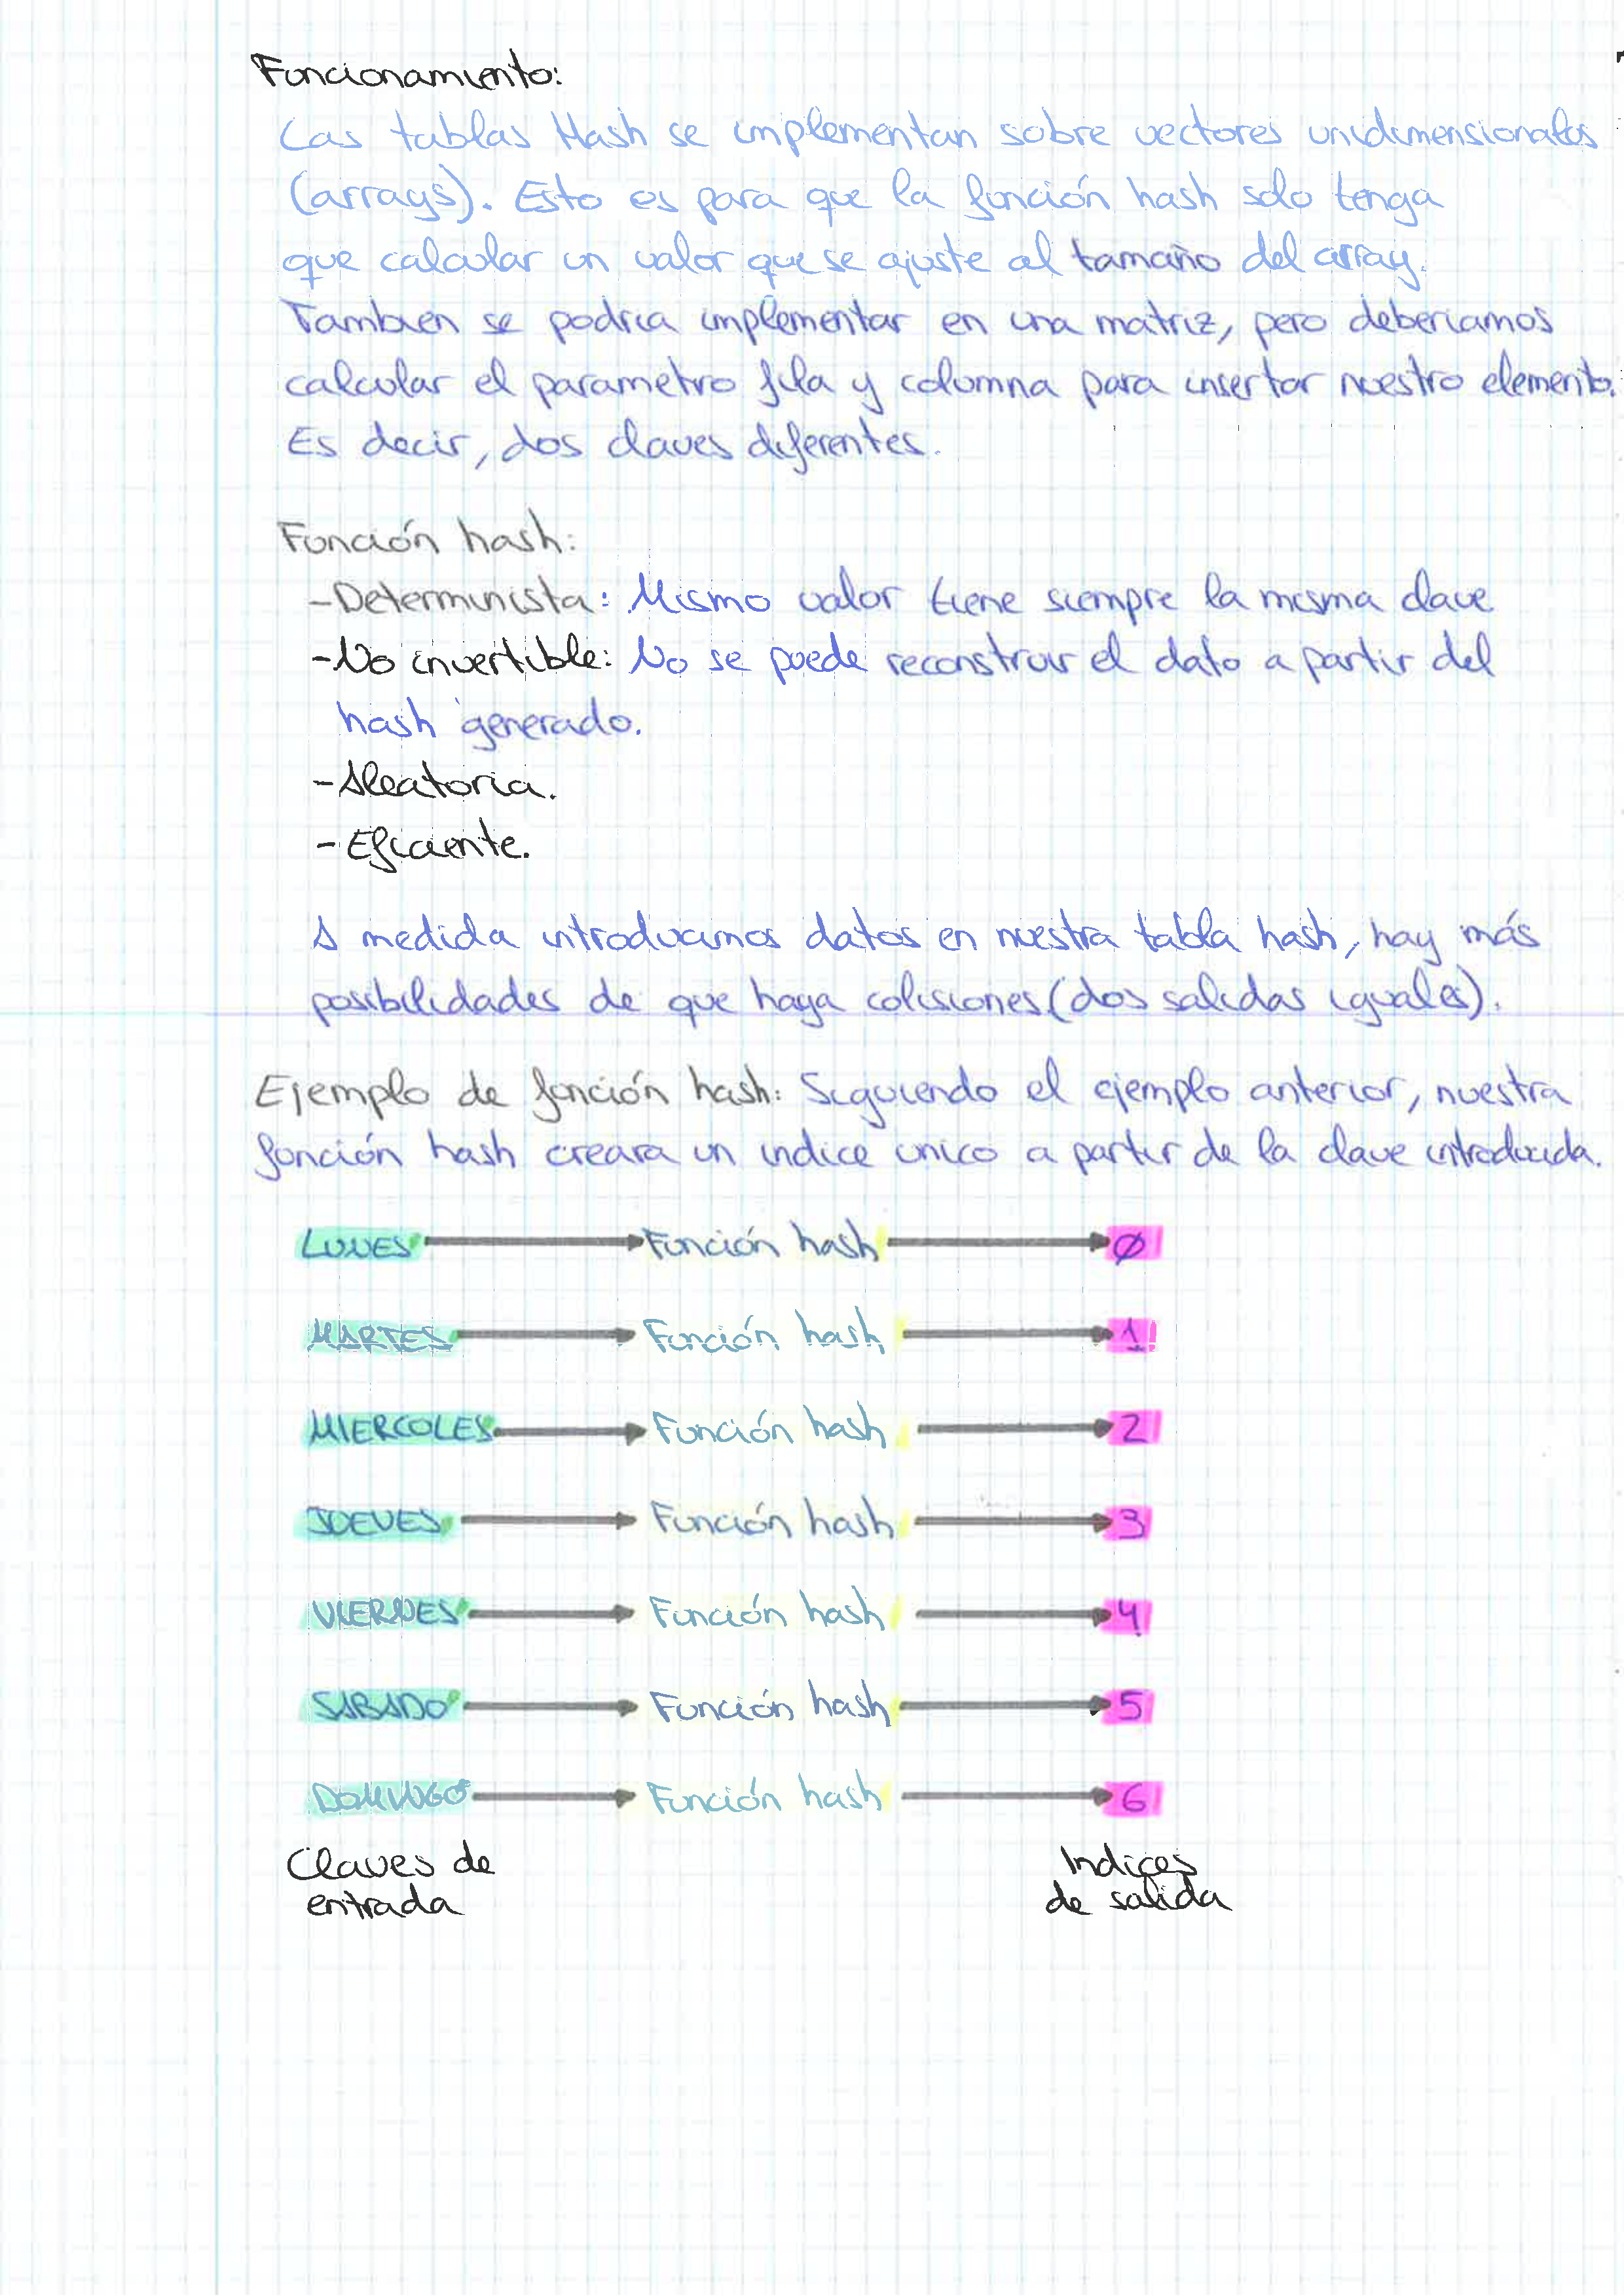 Funcionamiento:
Las tablas Hash se implementan sobre vectores unidimensionales
(arrays). Esto es para que la función hash solo tenga
que calcular un valor que se ajuste al tamaño del array.
Tambien se podria implementar en una matriz, pero deberiamos
calcular el parametro fila y columna para insertar nuestro elemento.
Es decir, dos claves diferentes.
Función hash:
-Determinista: Mismo valor tiene siempre la misma clave
-No invertible: No se puede reconstruir el dato a partir del
hash generado.
-Aleatoria.
-Eficiente.
A medida introducimos datos en nuestra tabla hash, hay más
posibilidades de que haya colisiones (dos salidas iguales).
Ejemplo de función hash: Siguiendo el ejemplo anterior, nuestra
función hash creara un indice unico a partir de la clave introducida.
LUNES Función hash 0
MARTES Función hash 1
MIERCOLES Función hash 2
JUEVES Función hash 3
VIERNES Función hash 4
SABADO Función hash 5
DOMINGO Función hash 6
Claves de
entrada
Indices
de salida